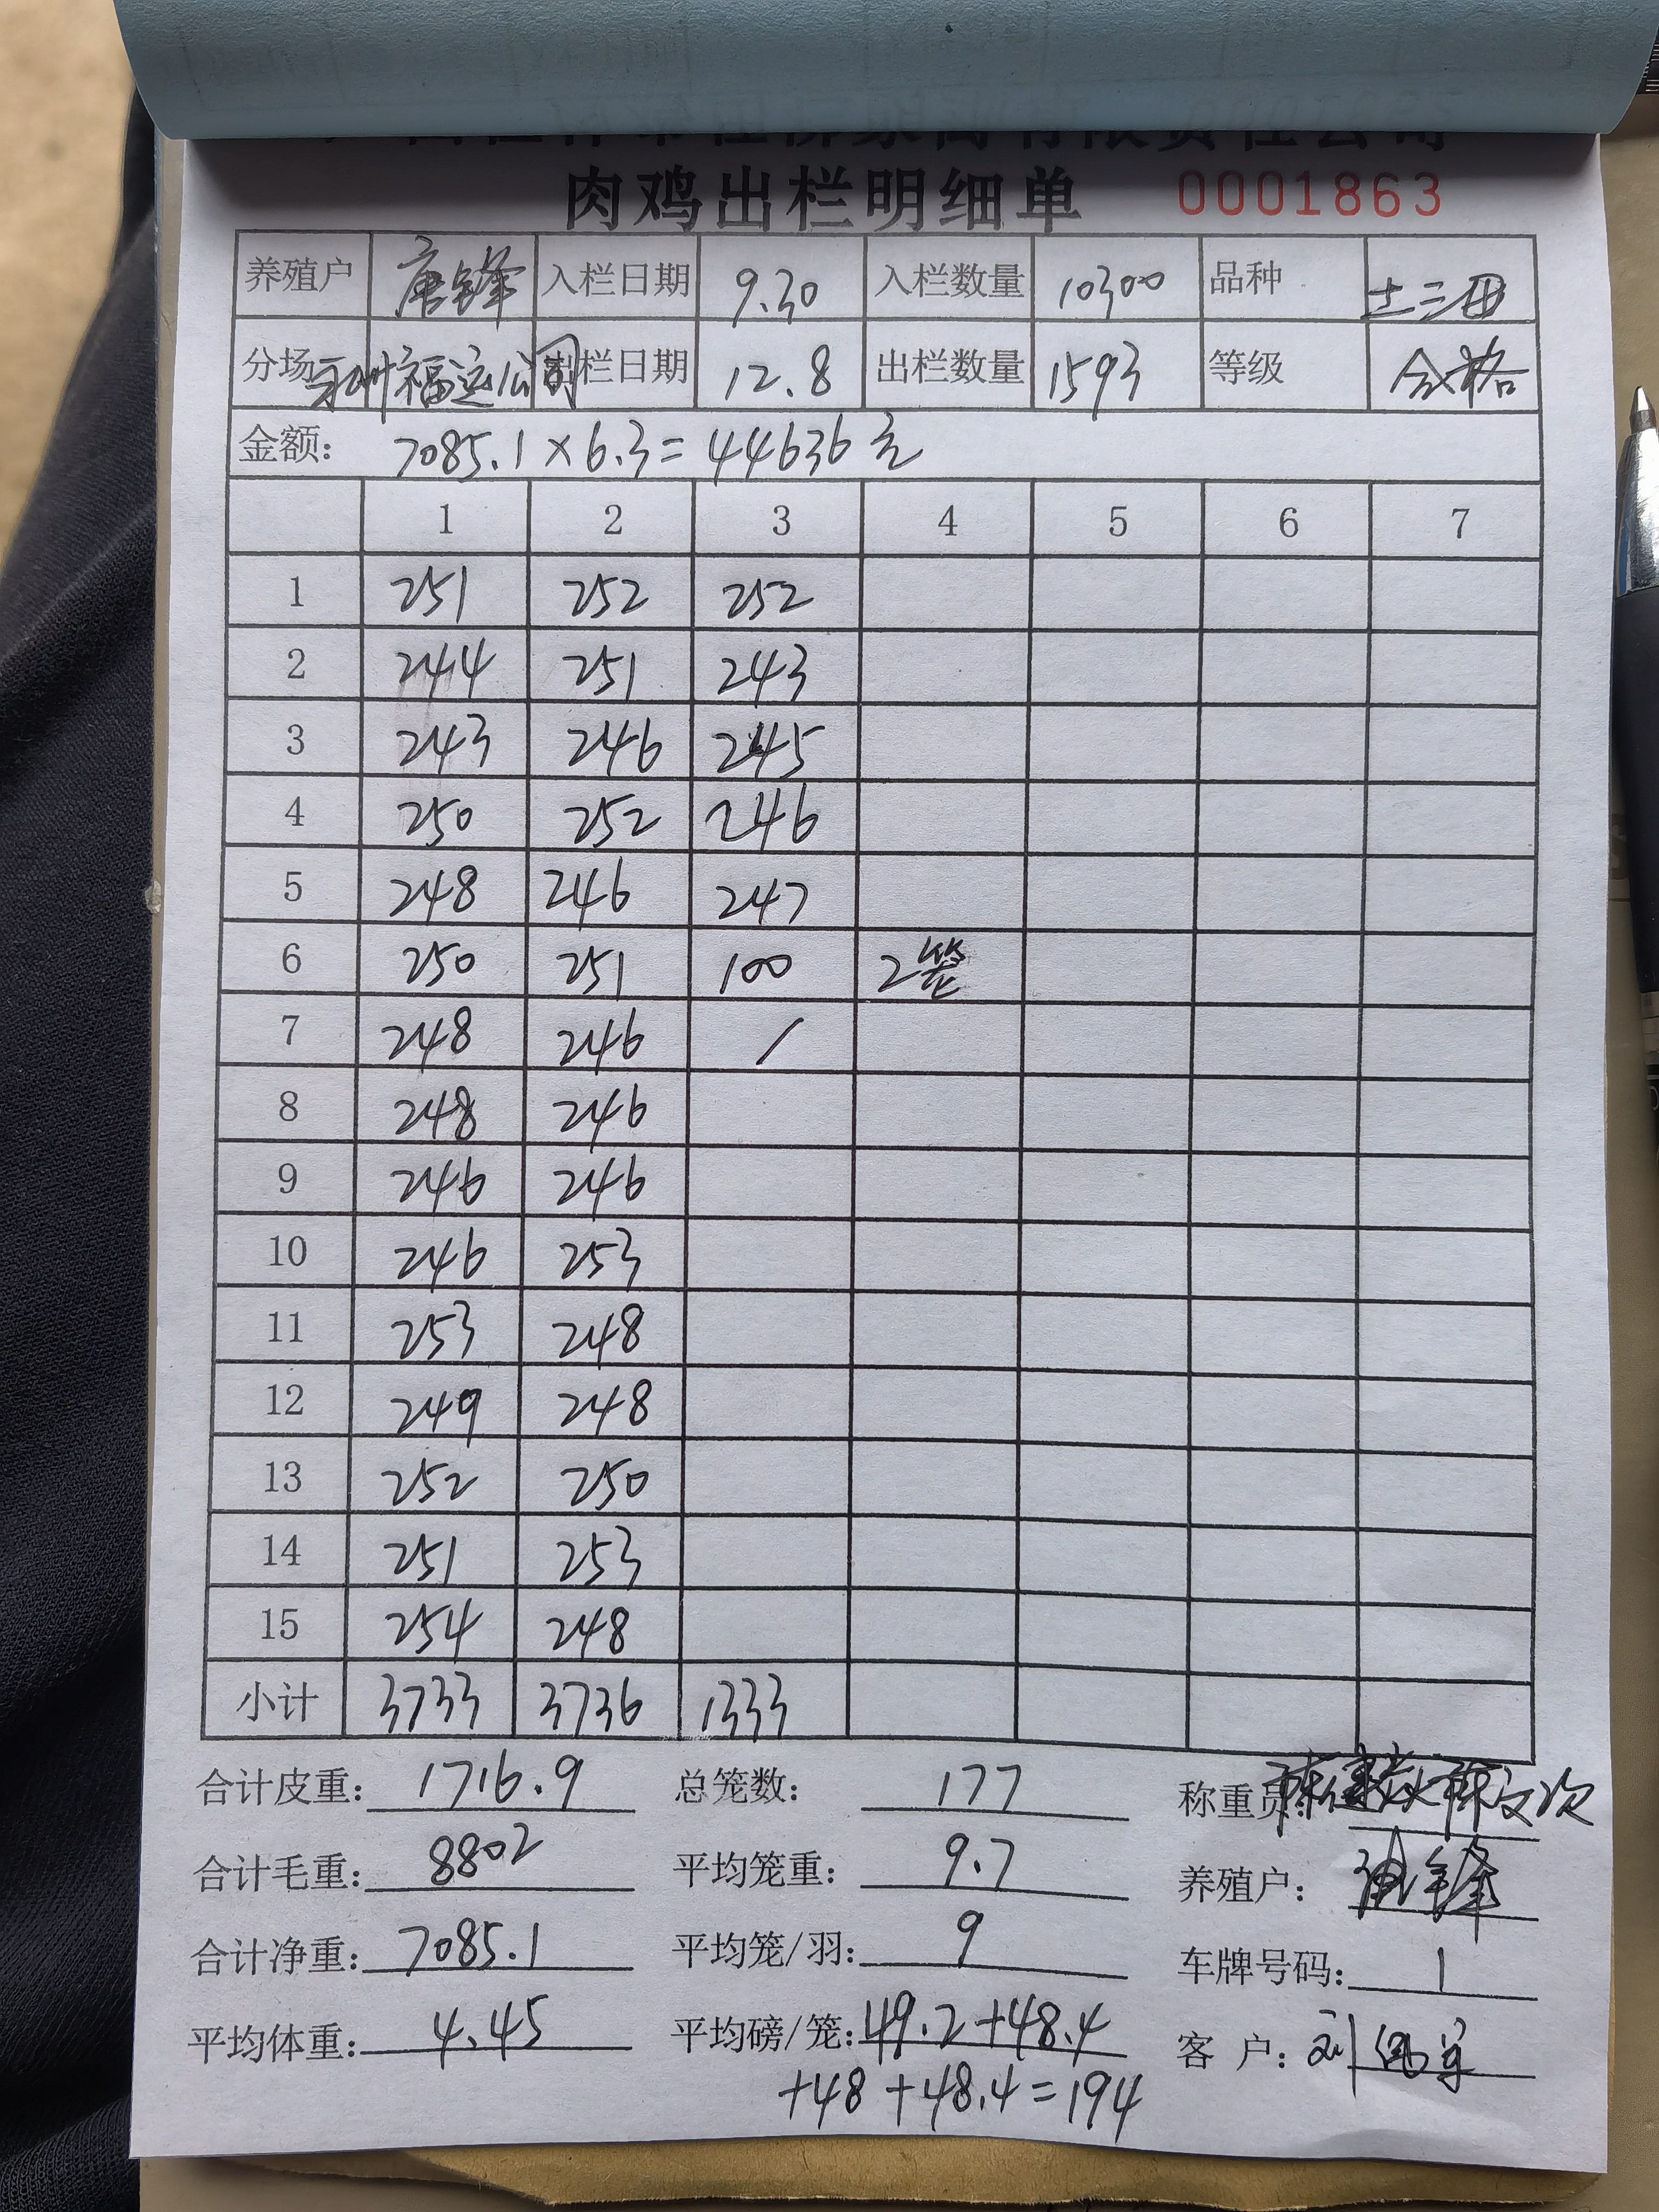 肉鸡出栏明细单 0001863
养殖户 唐锋 入栏日期 9.30 入栏数量 10300 品种 土三黑
分场 福运公司 出栏日期 12.8 出栏数量 1593 等级 合格
金额: 7085.1×6.3=44636元
1 2 3 4 5 6 7
1 251 252 252
2 244 251 243
3 243 246 245
4 250 252 246
5 248 246 247
6 250 251 100 2笼
7 248 246 /
8 248 246
9 246 246
10 246 253
11 253 248
12 249 248
13 252 250
14 251 253
15 254 248
小计 3733 3736 1333
合计皮重: 1716.9 总笼数: 177 称重员:
合计毛重: 8802 平均笼重: 9.7 养殖户: 锋
合计净重: 7085.1 平均笼/羽: 9 车牌号码: 1
平均体重: 4.45 平均磅/笼: 49.2+48.4 客 户: 刘
+48+48.4=194